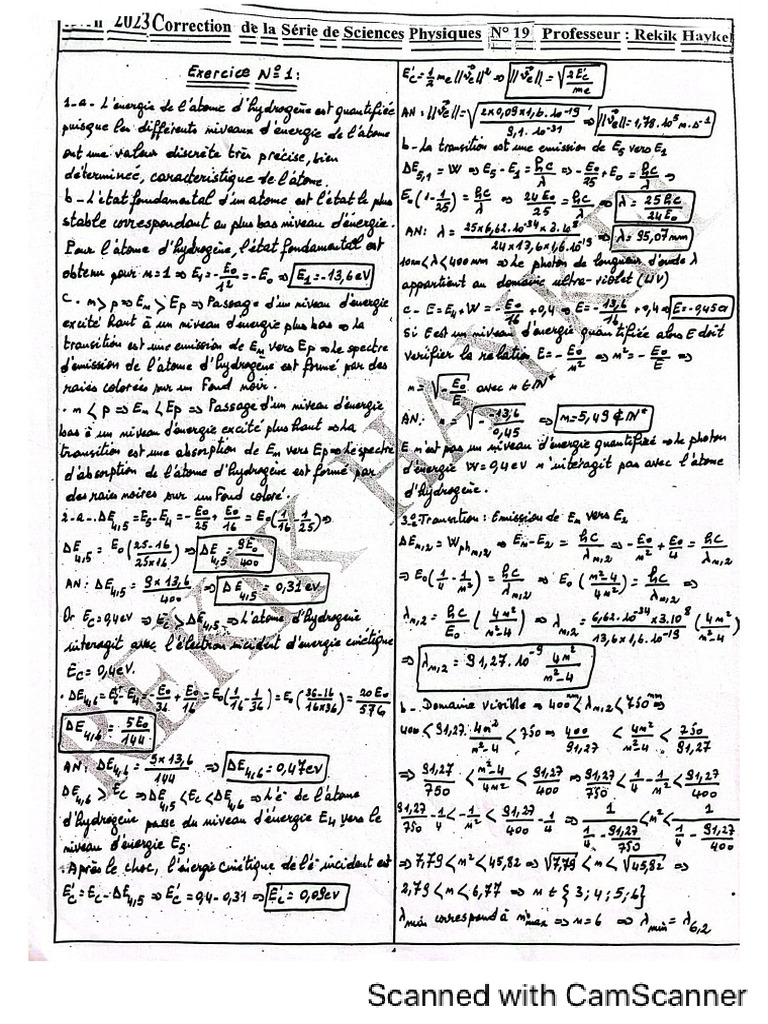 2023 Correction de la Série de Sciences Physiques N° 19 Professeur : Rekik Haykel
Exercice N°1:
1-a- L'énergie de l'atome d'hydrogène est quantifiée
puisque les différents niveaux d'énergie de l'atome
ont une valeur discrète très précise, bien
déterminée, caractéristique de l'atome.
b- L'état fondamental d'un atome est l'état le plus
stable correspondant au plus bas niveau d'énergie.
Pour l'atome d'hydrogène, l'état fondamental est
obtenu pour n=1 ⇒ E₁=-E₀/1²=-E₀ ⇒ E₁=-13,6eV
c- n > p ⇒ En > Ep ⇒ Passage d'un niveau d'énergie
excité haut à un niveau d'énergie plus bas ⇒ la
transition est une émission de En vers Ep ⇒ le spectre
d'émission de l'atome d'hydrogène est formé par des
raies colorées sur un fond noir.
. n < p ⇒ En < Ep ⇒ Passage d'un niveau d'énergie
bas à un niveau d'énergie excité plus haut ⇒ la
transition est une absorption de En vers Ep ⇒ le spectre
d'absorption de l'atome d'hydrogène est formé par
des raies noires sur un fond coloré.
2-a-. ΔE₄,₅=E₅-E₄=-E₀/25+E₀/16=E₀(1/16-1/25) ⇒
ΔE₄,₅=E₀(25-16/25x16) ⇒ ΔE₄,₅=9E₀/400
AN: ΔE₄,₅=9x13,6/400 ⇒ ΔE₄,₅=0,31ev
Or Ec=0,4ev ⇒ Ec > ΔE₄,₅ ⇒ L'atome d'hydrogène
interagit avec l'électron incident d'énergie cinétique
Ec=0,4ev.
. ΔE₄,₆=E₆-E₄=-E₀/36+E₀/16=E₀(1/16-1/36)=E₀(36-16/16x36)=20E₀/576
ΔE₄,₆=5E₀/144
AN: ΔE₄,₆=5x13,6/144 ⇒ ΔE₄,₆=0,47ev
ΔE₄,₆ > Ec ⇒ ΔE₄,₅<Ec<ΔE₄,₆ ⇒ L'é de l'atome
d'hydrogène passe du niveau d'énergie E₄ vers le
niveau d'énergie E₅.
. Après le choc, l'énergie cinétique de l'é incident est
E'c=Ec-ΔE₄,₅ ⇒ E'c=0,4-0,31 ⇒ E'c=0,09eV
E'c=1/2 me||v'e||² ⇒ ||v'e||=√(2E'c/me)
AN: ||v'e||=√(2x0,09x1,6.10⁻¹⁹/9,1.10⁻³¹) ⇒ ||v'e||=1,78.10⁵m.s⁻¹
b- La transition est une emission de E₅ vers E₁
ΔE₅,₁=W ⇒ E₅-E₁=hC/λ ⇒ -E₀/25+E₀=hC/λ ⇒
E₀(1-1/25)=hC/λ ⇒ 24E₀/25=hC/λ ⇒ λ=25hC/24E₀
AN: λ=25x6,62.10⁻³⁴x3.10⁸/24x13,6x1,6.10⁻¹⁹ ⇒ λ=95,07nm
10nm<λ<400nm ⇒ le photon de longueur d'onde λ
appartient au domaine ultra-violet (UV)
c- E=E₄+W=-E₀/16+0,4 ⇒ E=-13,6/16+0,4 ⇒ E=-0,45eV
Si E est un niveau d'énergie quantifiée alors E doit
vérifier la relation E=-E₀/n² ⇒ n²=-E₀/E ⇒
n=√(-E₀/E) avec n∈IN*
AN: n=√(-13,6/0,45) ⇒ n=5,49 ∉ IN*
E n'est pas un niveau d'énergie quantifié ⇒ le photon
d'énergie W=0,4ev n'interagit pas avec l'atome
d'hydrogène.
3-a-Transition: Emission de En vers E₂
ΔEn,₂=Wphn,₂ ⇒ En-E₂=hC/λn,₂ ⇒ -E₀/n²+E₀/4=hC/λn,₂
⇒ E₀(1/4-1/n²)=hC/λn,₂ ⇒ E₀(n²-4/4n²)=hC/λn,₂ ⇒
λn,₂=hC/E₀(4n²/n²-4) ⇒ λn,₂=6,62.10⁻³⁴x3.10⁸/13,6x1,6.10⁻¹⁹(4n²/n²-4)
⇒ λn,₂=91,27.10⁻⁹ 4n²/n²-4
b- Domaine visible ⇒ 400nm<λn,₂<750nm ⇒
400<91,27.4n²/n²-4<750 ⇒ 400/91,27<4n²/n²-4<750/91,27
⇒ 91,27/750<n²-4/4n²<91,27/400 ⇒ 91,27/750<1/4-1/n²<91,27/400
91,27/750-1/4<-1/n²<91,27/400-1/4 ⇒ 1/(1/4-91,27/750)<n²<1/(1/4-91,27/400)
⇒ 7,79<n²<45,82 ⇒ √7,79<n<√45,82 ⇒
2,79<n<6,77 ⇒ n∈{3;4;5;6}
λmin correspond à nmax ⇒ n=6 ⇒ λmin=λ₆,₂
REKIK HAYKEL
Scanned with CamScanner